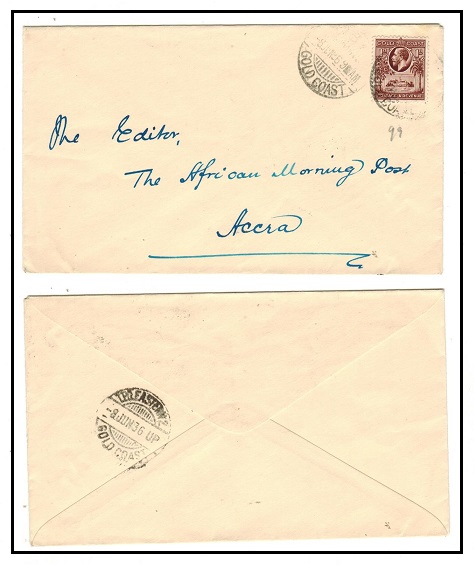 GOLD COAST
GOLD COAST
99
The Editor,
The African Morning Post
Accra
-8 JUN 36 UP
GOLD COAST